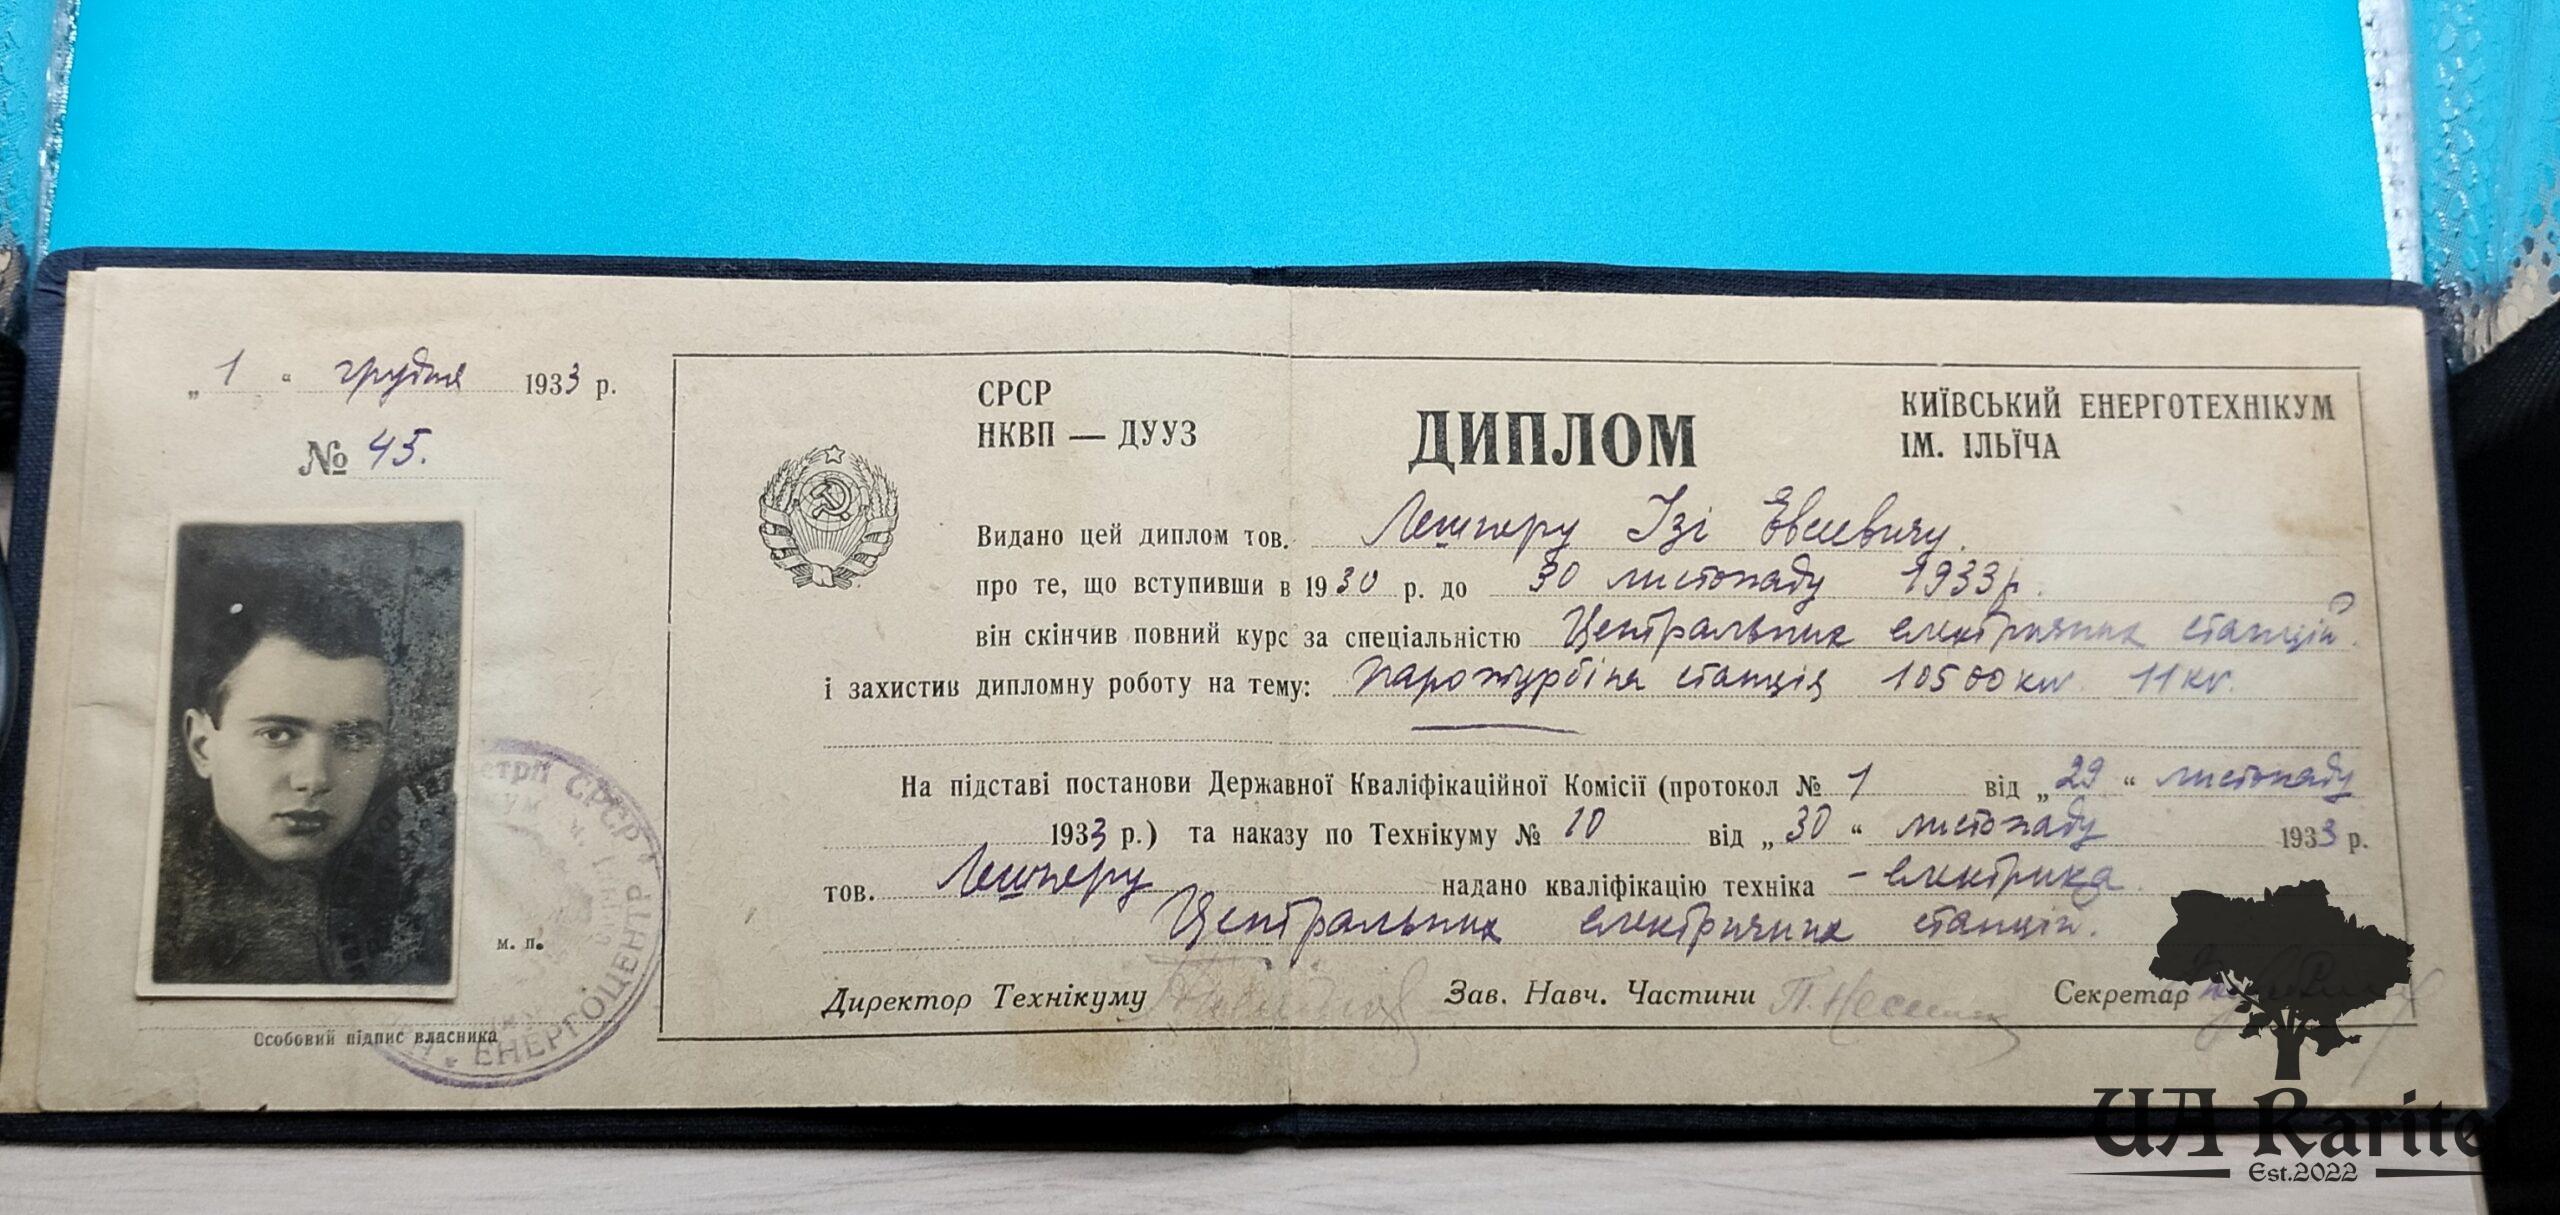 „1“ грудня 1933 р.
№ 45.
м. п.
Особовий підпис власника
етрії СРСР
ЕНЕРГОЦЕНТР
СРСР
НКВП — ДУУЗ
ДИПЛОМ
КИЇВСЬКИЙ ЕНЕРГОТЕХНІКУМ
ІМ. ІЛЬЇЧА
Видано цей диплом тов. Лешперу Ізі Євсеевичу.
про те, що вступивши в 1930 р. до 30 листопаду 1933 р.
він скінчив повний курс за спеціальністю Центральних електричних станцій.
і захистив дипломну роботу на тему: Паротурбіна станція 10500 kw. 11 kv.
На підставі постанови Державної Кваліфікаційної Комісії (протокол № 1 від „29“ листопаду
1933 р.) та наказу по Технікуму № 10 від „30“ листопаду 1933 р.
тов. Лешперу надано кваліфікацію техніка – електрика
Центральних електричних станцій.
Директор Технікуму Зав. Навч. Частини Секретар
UA Rarite
Est.2022